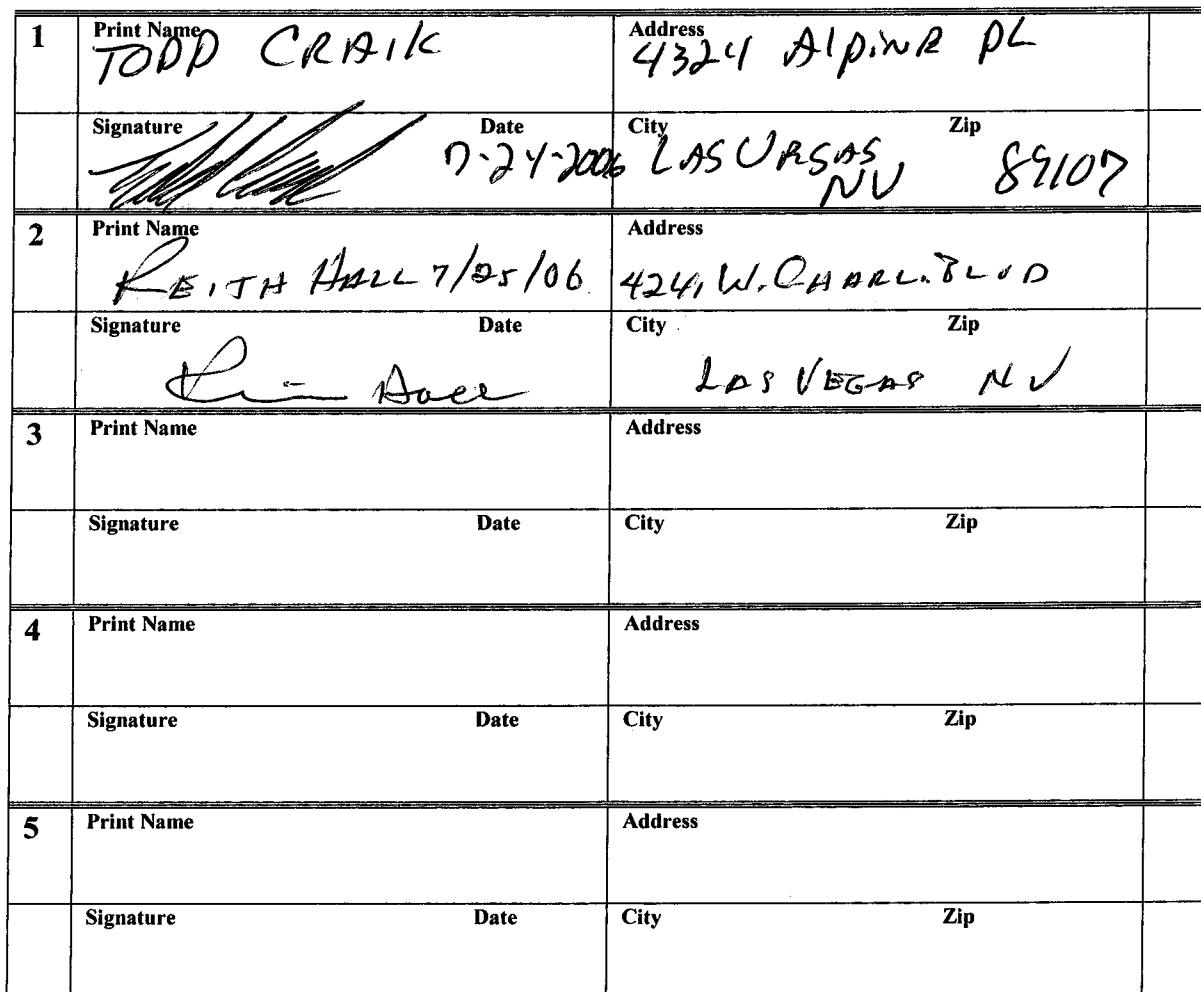 1 Print Name Address
TODD CRAIK 4324 Alpine PL
Signature Date City Zip
7-24-2006 LAS VEGAS NV 89107
2 Print Name Address
KEITH HALL 7/25/06 4241 W. CHARL. BLVD
Signature Date City Zip
Hall LAS VEGAS NV
3 Print Name Address
Signature Date City Zip
4 Print Name Address
Signature Date City Zip
5 Print Name Address
Signature Date City Zip